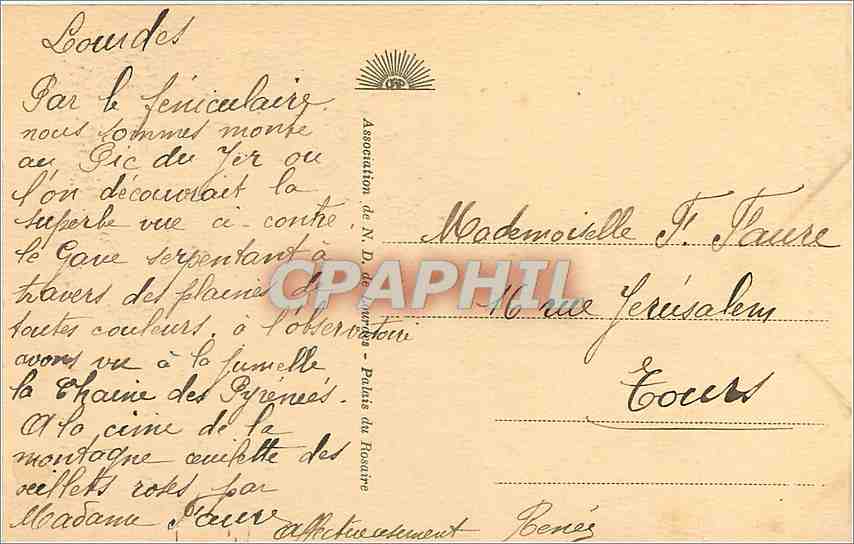 Lourdes
Par le féniculaire
nous sommes monté
au Pic du Jer ou
l'on découvrait la
superbe vue ci-contre.
le Gave serpentant à
travers des plaines de
toutes couleurs. à l'observatoire
avons vu à la jumelle
la Chaine des Pyrénées.
A la cime de la
montagne ceuilette des
oeillets roses par
Madame Faure
affectueusement Renée
Association de N. D. de Lourdes - Palais du Rosaire
Mademoiselle F. Faure
16 rue Jérusalem
Tours
CPAPHIL